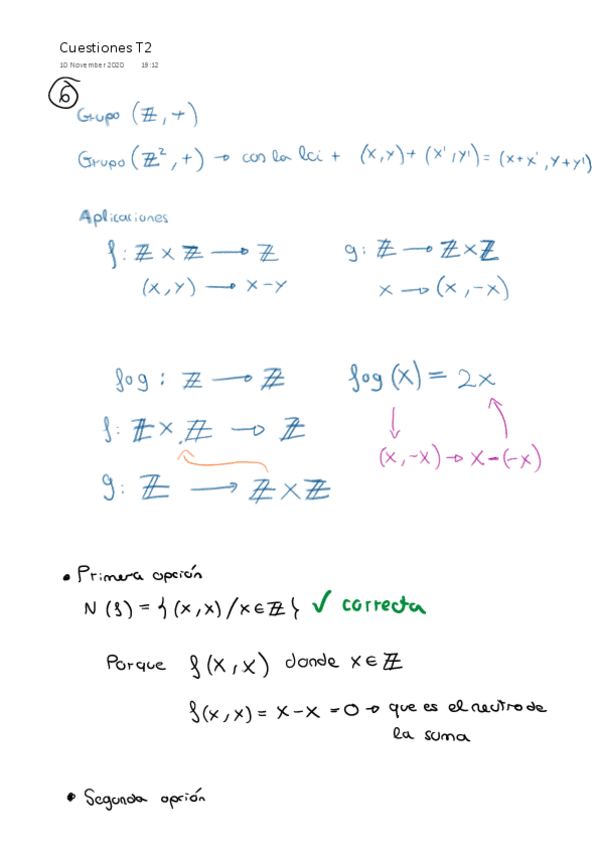 Cuestiones T2
10 November 2020 19:12
6
Grupo (ℤ, +)
Grupo (ℤ², +) → con la lci + (x,y) + (x',y') = (x+x', y+y')
Aplicaciones
f: ℤ × ℤ → ℤ g: ℤ → ℤ×ℤ
(x,y) → x-y x → (x,-x)
fog : ℤ → ℤ fog(x) = 2x
f: ℤ × ℤ → ℤ
(x,-x) → x-(-x)
g: ℤ → ℤ×ℤ
• Primera opción
N(f) = {(x,x) / x∈ℤ} ✓ correcta
Porque f(x,x) donde x∈ℤ
f(x,x) = x-x = 0 → que es el neutro de
la suma
• Segunda opción